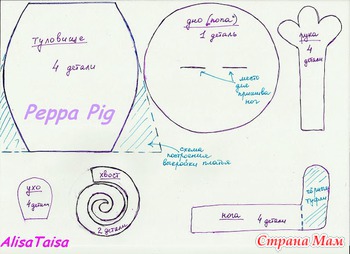 туловище
4 детали
Peppa Pig
дно (попа)
1 деталь
место
для
пришива
ног
рука
4
детали
схема
построения
выкройки платья
ухо
4 детали
хвост
2 детали
нога 4 детали
чёрные
туфли
AlisaTaisa
Страна Мам